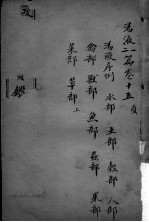 湯液二篇卷十五 負
湯液序例 水部 土部 穀部 人部
禽部 獸部 魚部 蟲部 果部
菜部 草部上
鑑